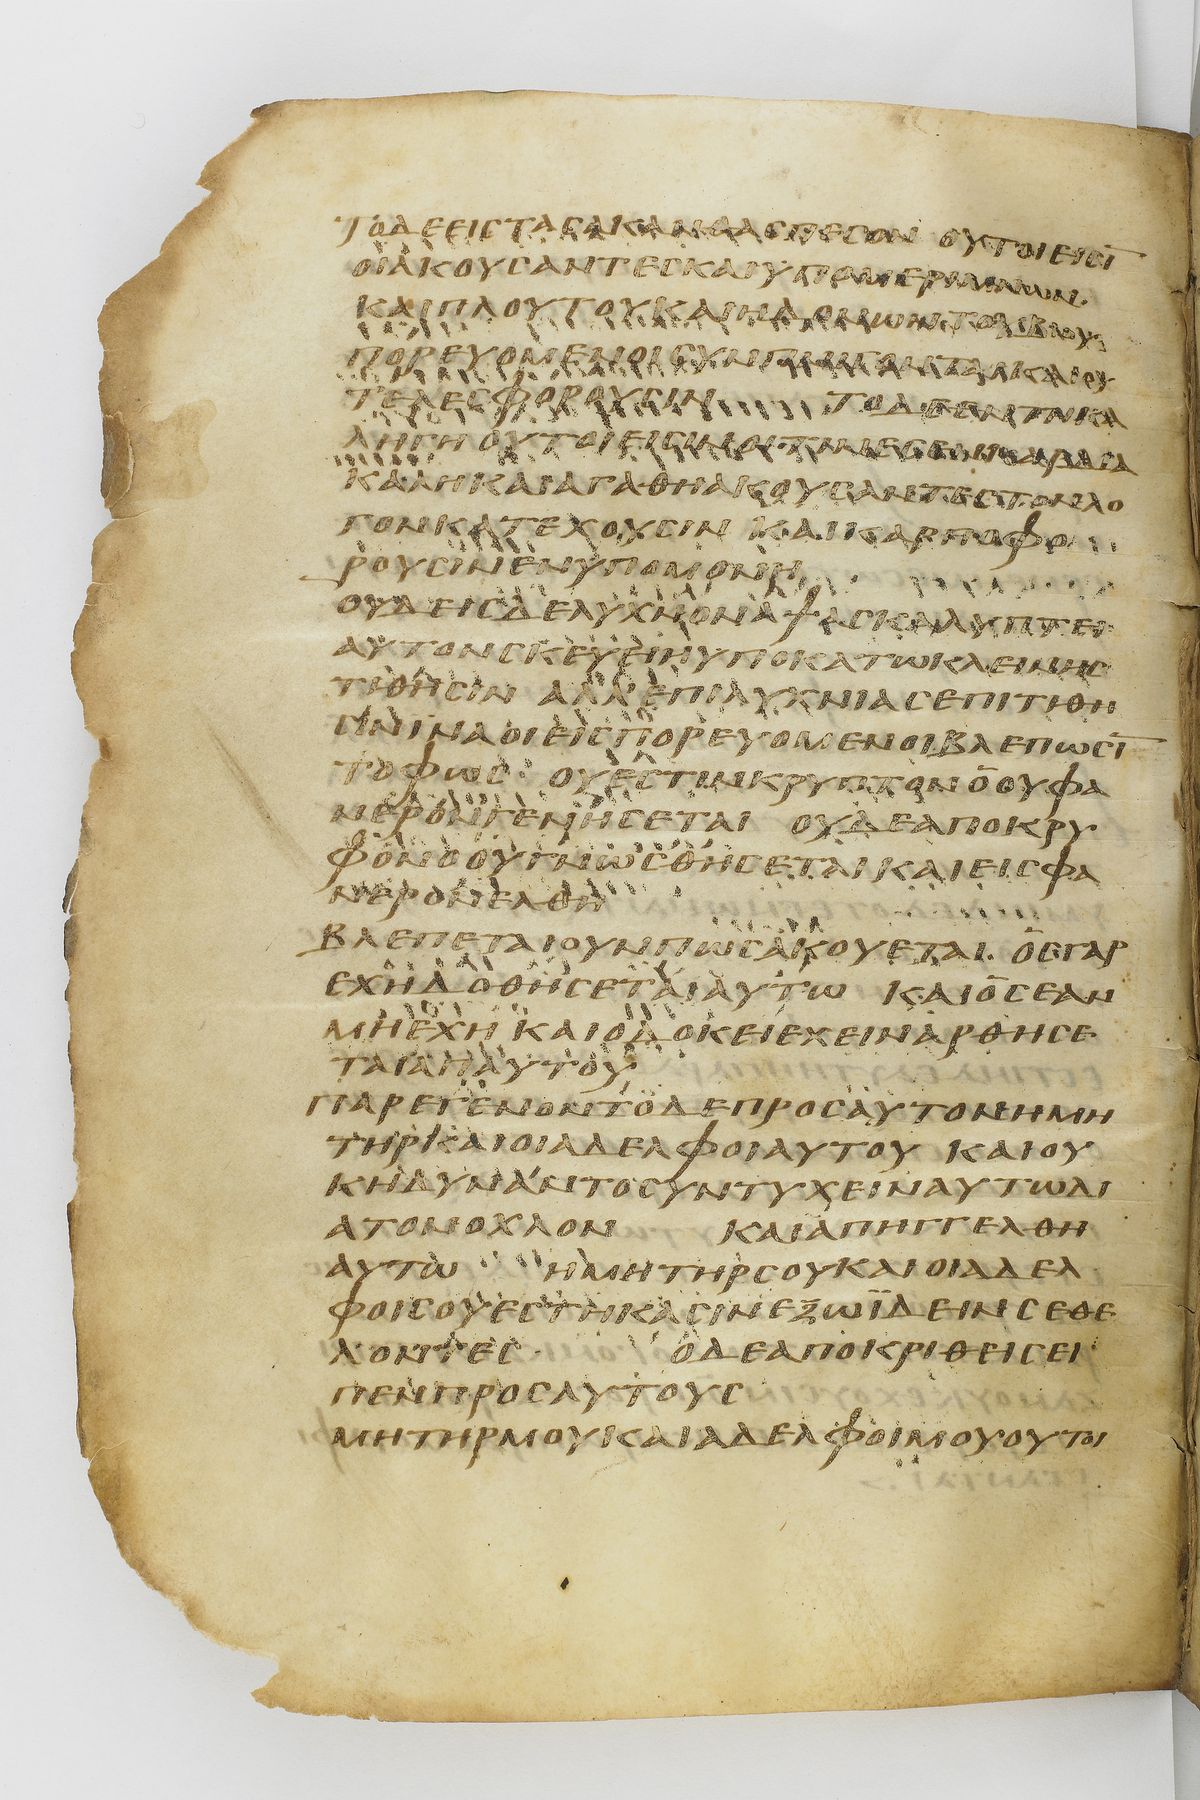 ΤΟΔΕΕΙΣΤΑΣΑΚΑΝΘΑΣΠΕΣΟΝ ΟΥΤΟΙΕΙΣΙ̅
ΟΙΑΚΟΥΣΑΝΤΕΣΚΑΙΥΠΟΜΕΡΙΜΝΩΝ.
ΚΑΙΠΛΟΥΤΟΥΚΑΙΗΔΟΝΩΝΤΟΥΒΙΟΥ
ΠΟΡΕΥΟΜΕΝΟΙΣΥΝΠΝΙΓΟΝΤΑΙΚΑΙΟΥ
ΤΕΛΕΣΦΟΡΟΥΣΙΝ ΤΟΔΕΕΝΤΗΚΑ
ΛΗΓΗΟΥΤΟΙΕΙΣΙΝΟΙΤΙΝΕΣΕΝΚΑΡΔΙΑ
ΚΑΛΗΚΑΙΑΓΑΘΗΑΚΟΥΣΑΝΤΕΣΤΟΝΛΟ
ΓΟΝΚΑΤΕΧΟΥΣΙΝ ΚΑΙΚΑΡΠΟΦΟ
ΡΟΥΣΙΝΕΝΥΠΟΜΟΝΗ
ΟΥΔΕΙΣΔΕΛΥΧΝΟΝΑΨΑΣΚΑΛΥΠΤΕΙ
ΑΥΤΟΝΣΚΕΥΕΙΗΥΠΟΚΑΤΩΚΛΕΙΝΗΣ
ΤΙΘΗΣΙΝ ΑΛΛΕΠΙΛΥΧΝΙΑΣΕΠΙΤΙΘΗ
ΣΙΝΙΝΑΟΙΕΙΣΠΟΡΕΥΟΜΕΝΟΙΒΛΕΠΩΣΙ̅
ΤΟΦΩΣ ΟΥΕΣΤΙΝΚΡΥΠΤΟΝΟΟΥΦΑ
ΝΕΡΟΝΓΕΝΗΣΕΤΑΙ ΟΥΔΕΑΠΟΚΡΥ
ΦΟΝΟΟΥΓΝΩΣΘΗΣΕΤΑΙΚΑΙΕΙΣΦΑ
ΝΕΡΟΝΕΛΘΗ
ΒΛΕΠΕΤΑΙΟΥΝΠΩΣΑΚΟΥΕΤΑΙ. ΟΣΓΑΡ
ΕΧΗΔΟΘΗΣΕΤΑΙΑΥΤΩ ΚΑΙΟΣΕΑΝ
ΜΗΕΧΗΚΑΙΟΔΟΚΕΙΕΧΕΙΝΑΡΘΗΣΕ
ΤΑΙΑΠΑΥΤΟΥ
ΠΑΡΕΓΕΝΟΝΤΟΔΕΠΡΟΣΑΥΤΟΝΗΜΗ
ΤΗΡΚΑΙΟΙΑΔΕΛΦΟΙΑΥΤΟΥ ΚΑΙΟΥ
ΚΗΔΥΝΑΝΤΟΣΥΝΤΥΧΕΙΝΑΥΤΩΔΙ
ΑΤΟΝΟΧΛΟΝ ΚΑΙΑΠΗΓΓΕΛΘΗ
ΑΥΤΩ ΗΜΗΤΗΡΣΟΥΚΑΙΟΙΑΔΕΛ
ΦΟΙΣΟΥΕΣΤΗΚΑΣΙΝΕΞΩΪΔΕΙΝΣΕΘΕ
ΛΟΝΤΕΣ ΟΔΕΑΠΟΚΡΙΘΕΙΣΕΙ
ΠΕΝΠΡΟΣΑΥΤΟΥΣ
ΜΗΤΗΡΜΟΥΚΑΙΑΔΕΛΦΟΙΜΟΥΟΥΤΟΙ